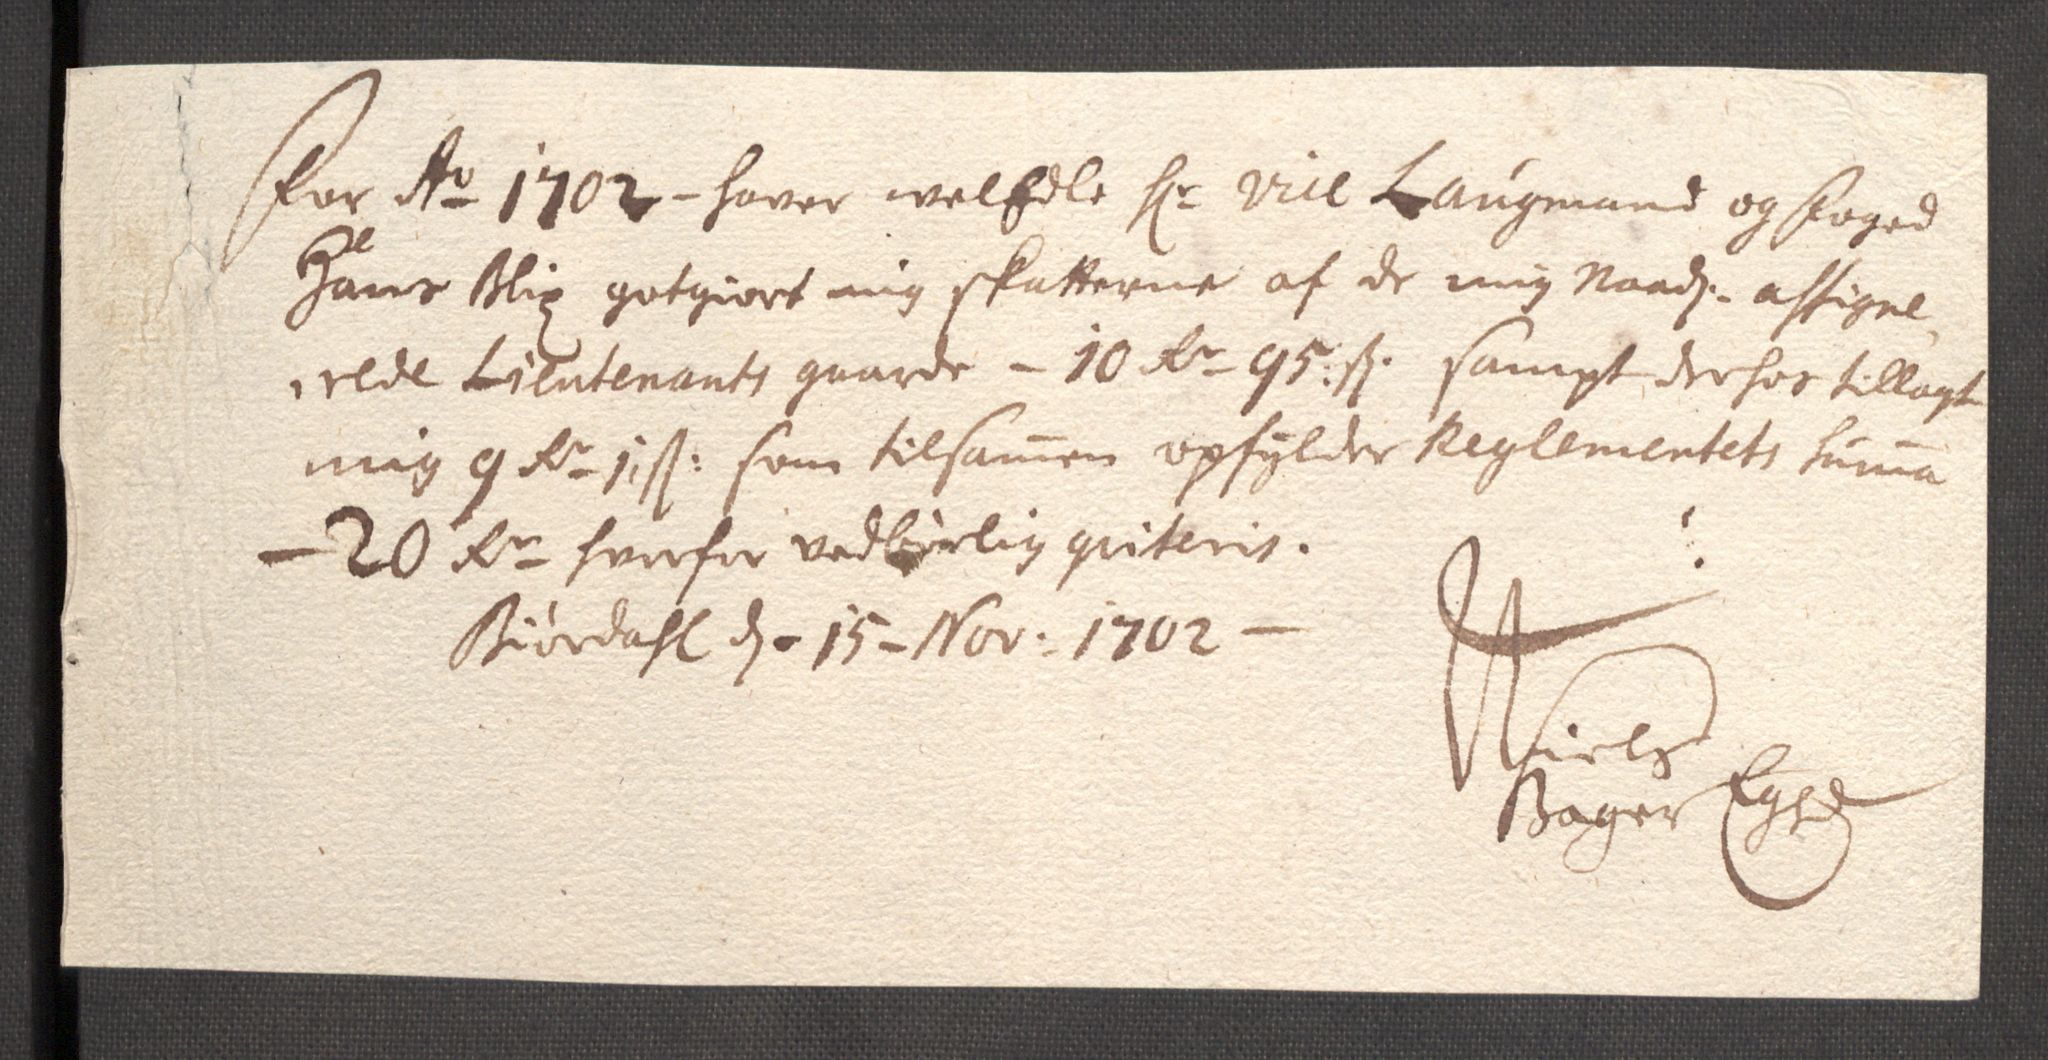 For Ao 1702 - haver welEdle Hr Vice Laugmand og Foged
Hans Blix gotgiort mig skatterne af de mig Naads: assigne,
rede Lieutenants gaarde - 10 Rdr 95: s: sampt derhos tillagt
mig 9 Rdr 1: s: som tilsamen opfylder Reglementets Suma
- 20 Rdr hvorfor vedbørlig qviteris.
Biørdahl d. - 15 - Nov: 1702 -
Niels
Bager Egede